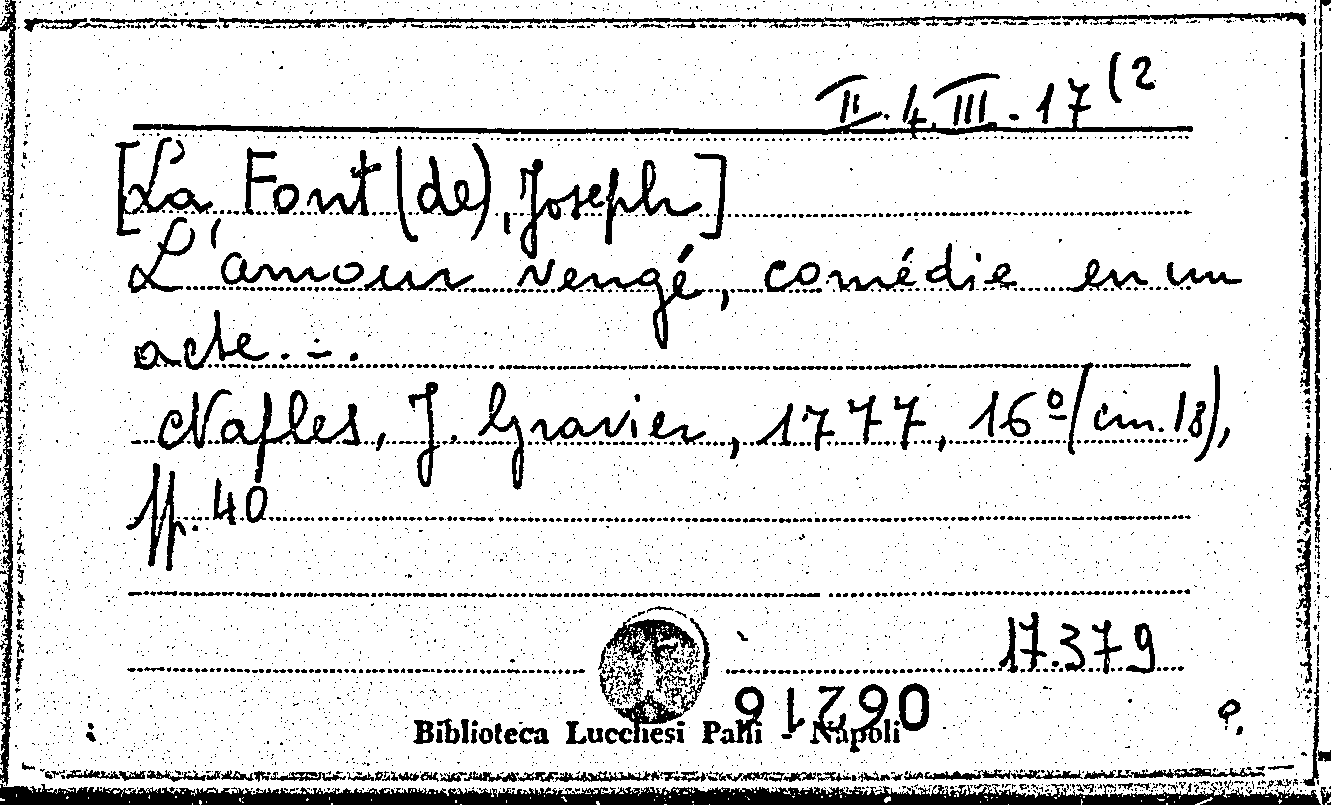 II.4.III.17(2
[La Font (de), Joseph]
L'amour vengé, comédie en un
acte...
Naples, J. Gravier, 1777, 16º (cm. 18),
pp. 40
17.379
Biblioteca Lucchesi Palli - Napoli